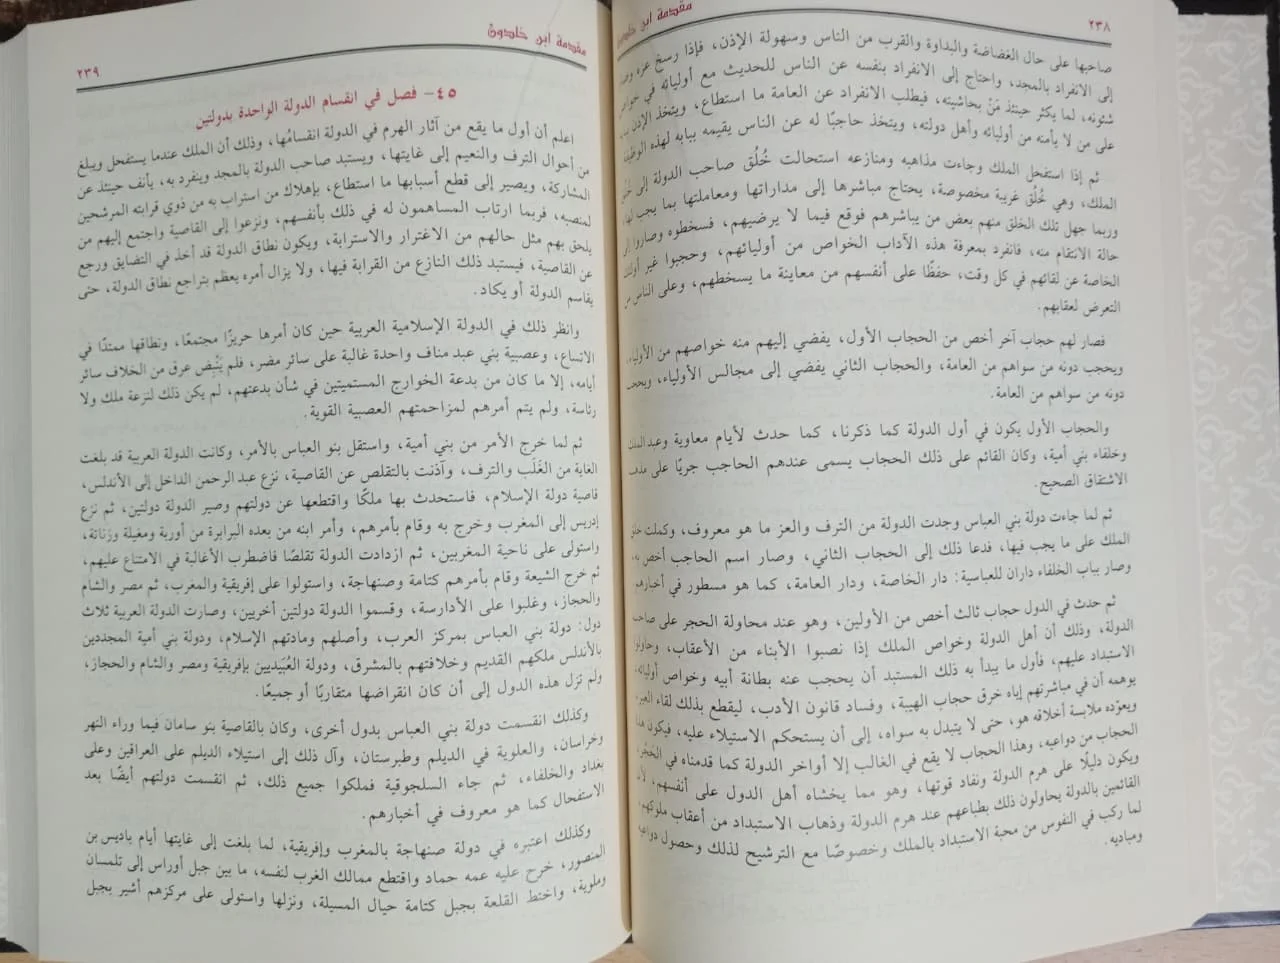 ٢٣٨
مقدمة ابن خلدون
صاحبها على حال الغضاضة والبداوة والقرب من الناس وسهولة الإذن، فإذا رسخ عزه
إلى الانفراد بالمجد، واحتاج إلى الانفراد بنفسه عن الناس للحديث مع أوليائه في
شئونه، لما يكثر حينئذ مَنْ بحاشيته، فيطلب الانفراد عن العامة ما استطاع، ويتخذ الإذن
على من لا يأمنه من أوليائه وأهل دولته، ويتخذ حاجبًا له عن الناس يقيمه ببابه لهذه الوظيفة
ثم إذا استفحل الملك وجاءت مذاهبه ومنازعه استحالت خُلُق صاحب الدولة إلى
الملك، وهي خُلُق غريبة مخصوصة، يحتاج مباشرها إلى مداراتها ومعاملتها بما يجب لها
وربما جهل تلك الخلق منهم بعض من يباشرهم فوقع فيما لا يرضيهم، فسخطوه وصاروا إلى
حالة الانتقام منه، فانفرد بمعرفة هذه الآداب الخواص من أوليائهم، وحجبوا غير أولئك
الخاصة عن لقائهم في كل وقت، حفظًا على أنفسهم من معاينة ما يسخطهم، وعلى الناس من
التعرض لعقابهم.
فصار لهم حجاب آخر أخص من الحجاب الأول، يفضي إليهم منه خواصهم من الأولياء،
ويحجب دونه من سواهم من العامة، والحجاب الثاني يفضي إلى مجالس الأولياء، ويحجب
دونه من سواهم من العامة.
والحجاب الأول يكون في أول الدولة كما ذكرنا، كما حدث لأيام معاوية وعبد الملك
وخلفاء بني أمية، وكان القائم على ذلك الحجاب يسمى عندهم الحاجب جريًا على مذهب
الاشتقاق الصحيح.
ثم لما جاءت دولة بني العباس وجدت الدولة من الترف والعز ما هو معروف، وكملت خلق
الملك على ما يجب فيها، فدعا ذلك إلى الحجاب الثاني، وصار اسم الحاجب أخص به،
وصار بباب الخلفاء داران للعباسية: دار الخاصة، ودار العامة، كما هو مسطور في أخبارهم.
ثم حدث في الدول حجاب ثالث أخص من الأولين، وهو عند محاولة الحجر على صاحب
الدولة، وذلك أن أهل الدولة وخواص الملك إذا نصبوا الأبناء من الأعقاب، وحاولوا
الاستبداد عليهم، فأول ما يبدأ به ذلك المستبد أن يحجب عنه بطانة أبيه وخواص أوليائه،
يوهمه أن في مباشرتهم إياه خرق حجاب الهيبة، وفساد قانون الأدب، ليقطع بذلك لقاء الغير،
ويعوّده ملابسة أخلاقه هو، حتى لا يتبدل به سواه، إلى أن يستحكم الاستيلاء عليه، فيكون هذا
الحجاب من دواعيه، وهذا الحجاب لا يقع في الغالب إلا أواخر الدولة كما قدمناه في الحجر،
ويكون دليلًا على هرم الدولة ونفاد قوتها، وهو مما يخشاه أهل الدول على أنفسهم، لأن
القائمين بالدولة يحاولون ذلك بطباعهم عند هرم الدولة وذهاب الاستبداد من أعقاب ملوكهم،
لما ركب في النفوس من محبة الاستبداد بالملك وخصوصًا مع الترشيح لذلك وحصول دواعيه
ومباديه.
مقدمة ابن خلدون
٢٣٩
٤٥- فصل في انقسام الدولة الواحدة بدولتين
اعلم أن أول ما يقع من آثار الهرم في الدولة انقسامُها، وذلك أن الملك عندما يستفحل ويبلغ
من أحوال الترف والنعيم إلى غايتها، ويستبد صاحب الدولة بالمجد وينفرد به، يأنف حينئذ عن
المشاركة، ويصير إلى قطع أسبابها ما استطاع، بإهلاك من استراب به من ذوي قرابته المرشحين
لمنصبه، فربما ارتاب المساهمون له في ذلك بأنفسهم، ونزعوا إلى القاصية واجتمع إليهم من
يلحق بهم مثل حالهم من الاغترار والاسترابة، ويكون نطاق الدولة قد أخذ في التضايق ورجع
عن القاصية، فيستبد ذلك النازع من القرابة فيها، ولا يزال أمره يعظم بتراجع نطاق الدولة، حتى
يقاسم الدولة أو يكاد.
وانظر ذلك في الدولة الإسلامية العربية حين كان أمرها حريزًا مجتمعًا، ونطاقها ممتدًا في
الاتساع، وعصبية بني عبد مناف واحدة غالبة على سائر مضر، فلم يَنْبُض عرق من الخلاف سائر
أيامه، إلا ما كان من بدعة الخوارج المستميتين في شأن بدعتهم، لم يكن ذلك لنزعة ملك ولا
رئاسة، ولم يتم أمرهم لمزاحمتهم العصبية القوية.
ثم لما خرج الأمر من بني أمية، واستقل بنو العباس بالأمر، وكانت الدولة العربية قد بلغت
الغاية من الغَلَب والترف، وآذنت بالتقلص عن القاصية، نزع عبد الرحمن الداخل إلى الأندلس،
قاصية دولة الإسلام، فاستحدث بها ملكًا واقتطعها عن دولتهم وصير الدولة دولتين، ثم نزع
إدريس إلى المغرب وخرج به وقام بأمرهم، وأمر ابنه من بعده البرابرة من أوربة ومغيلة وزناتة،
واستولى على ناحية المغربين، ثم ازدادت الدولة تقلصًا فاضطرب الأغالبة في الامتناع عليهم،
ثم خرج الشيعة وقام بأمرهم كتامة وصنهاجة، واستولوا على إفريقية والمغرب، ثم مصر والشام
والحجاز، وغلبوا على الأدارسة، وقسموا الدولة دولتين أخريين، وصارت الدولة العربية ثلاث
دول: دولة بني العباس بمركز العرب، وأصلهم ومادتهم الإسلام، ودولة بني أمية المجددين
بالأندلس ملكهم القديم وخلافتهم بالمشرق، ودولة العُبَيديين بإفريقية ومصر والشام والحجاز،
ولم تزل هذه الدول إلى أن كان انقراضها متقاربًا أو جميعًا.
وكذلك انقسمت دولة بني العباس بدول أخرى، وكان بالقاصية بنو سامان فيما وراء النهر
وخراسان، والعلوية في الديلم وطبرستان، وآل ذلك إلى استيلاء الديلم على العراقين وعلى
بغداد والخلفاء، ثم جاء السلجوقية فملكوا جميع ذلك، ثم انقسمت دولتهم أيضًا بعد
الاستفحال كما هو معروف في أخبارهم.
وكذلك اعتبره في دولة صنهاجة بالمغرب وإفريقية، لما بلغت إلى غايتها أيام باديس بن
المنصور، خرج عليه عمه حماد واقتطع ممالك الغرب لنفسه، ما بين جبل أوراس إلى تلمسان
وملوية، واختط القلعة بجبل كتامة حيال المسيلة، ونزلها واستولى على مركزهم أشير بجبل